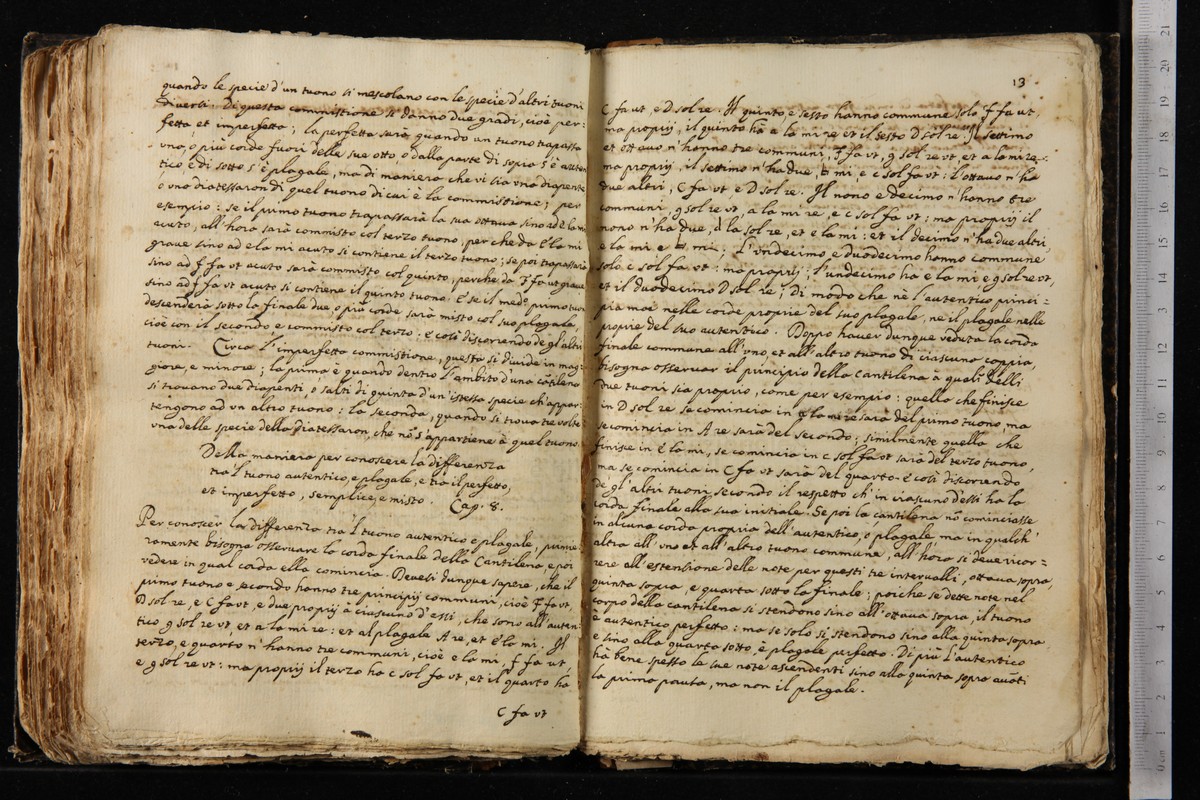 quando le specie d'un tuono si mescolano con le specie d'altri tuoni
diversi. Di questa commistione si danno due gradi, cioè per=
fetta, et imperfetta; la perfetta sarà quando un tuono trapassa
uno, o più corde fuori delle sue otto o dalla parte di sopra s'è auten
tico, è di sotto s'è plagale, ma di maniera che vi sia una diapente
o una diatessaron di quel tuono di cui è la commistione; per
esempio: se il primo tuono trapassarà la sua ottava sino ad e la mi
acuto, all'hora sarà commisto col terzo tuono, perche da E la mi
grave sino ad e la mi acuto si contiene il terzo tuono; se poi trapassarà
sino ad f fa ut acuto sarà commisto col quinto, perche da F fa ut grave
sino ad f fa ut acuto si contiene il quinto tuono. E se il medo primo tuon
descenderà sotto la finale due o più corde sarà misto col suo plagale,
cioè con il secondo e commisto col terzo: e così discorrendo de gl'altri
tuoni. Circa l'imperfetta commistione, questa si divide in mag=
giore, e minore; la prima è quando dentro l'ambito d'una cãtilena
si trovano due diapenti, ò salti di quinta d'un'istessa specie ch'appar=
tengono ad un altro tuono: la seconda, quando si trova tre volte
una delle specie della Diatessaron, che nõ s'appartiene à quel tuono.
Della maniera per conoscere la differenza
tra'l tuono autentico, e plagale, e trà il perfetto,
et imperfetto, semplice, e misto. Cap. 8.
Per conoscer la differenza trà'l tuono autentico e plagale, prime=
ramente bisogna osservare la corda finale della Cantilena, e poi
vedere in qual corda ella comincia. Devesi dunque sapere, che il
primo tuono e secondo hanno tre principij communi, cioè F fa ut,
D sol re, e C fa ut, e due proprij à ciascuno d'essi, che sono all'auten
tico g sol re ut et a la mi re: et al plagale A re, et E la mi. Il
terzo, e quarto n'hanno tre communi, cioè e la mi, F fa ut,
e g sol re ut: ma proprij il terzo ha c sol fa ut, et il quarto ha
C fa ut
13
C fa ut, e D sol re. Il quinto e sesto hanno commune solo F fa ut,
ma proprij, il quinto hà a la mi re et il sesto D sol re; Il settimo
et ottavo n'hanno tre communi, F fa ut, g sol re ut, et a la mi re:
ma proprij, il settimo n'hà due, ♮ mi, e c sol fa ut: l'ottavo n'hà
due altri, C fa ut e D sol re. Il nono e decimo n'hanno tre
communi, g sol re ut, a la mi re, e c sol fa ut; ma proprij il
nono n'hà due, d la sol re, et e la mi: et il decimo n'hà due altri,
e la mi e ♮ mi; L'undecimo e duodecimo hanno commune
solo c sol fa ut: ma proprij, l'undecimo ha e la mi e g sol re ut,
et il duodecimo D sol re; Di modo che nè l'autentico princi=
pia mai nelle corde proprie del suo plagale, nè il plagale nelle
proprie del suo autentico. Doppo haver dunque veduta la corda
finale commune all'uno, et all'altro tuono di ciascuna coppia,
bisogna osservar il principio della Cantilena à quali delli
due tuoni sia proprio, come per esempio: quella che finisce
in D sol re se comincia in a la mi re sarà del primo tuono, ma
se comincia in A re sarà del secondo; similmente quella che
finisce in E la mi, se comincia in c sol fa ut sarà del terzo tuono,
ma se comincia in C fa ut sarà del quarto. E così discorrendo
de gl'altri tuoni secondo il respetto ch'in ciascuno d'essi ha la
corda finale alla sua initiale. Se poi la cantilena nõ cominciasse
in alcuna corda propria dell'autentico, ò plagale, ma in qualch'
altra all'uno et all'altro tuono commune, all'hora si deve ricor=
rere all'estensione delle note per questi tre intervalli, ottava sopra,
quinta sopra, e quarta sotto la finale; poiche se dette note nel
corpo della cantilena si stendono sino all'ottava sopra, il tuono
è autentico perfetto: ma se solo si stendono sino alla quinta sopra
e sino alla quarta sotto, è plagale perfetto. Di più l'autentico
hà bene spesso le sue note ascendenti sino alla quinta sopra avãti
la prima pauta, ma non il plagale.